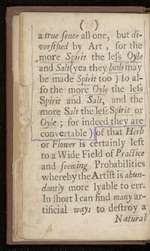 a true sense all one, but di-
versified by Art, for the
more Spirit the less Oyle
and Salt (yea they both may
be made Spirit too) so al-
so the more Oyle the less
Spirit and Salt, and the
more Salt the less Spirit or
Oyle; for indeed they are
convertable) of that Herb
or Flower is certainly left
to a Wide Field of Practice
and seeming Probabilities
whereby the Artist is abun-
dantly more lyable to err.
In short I can find many ar-
tificial ways to destroy a
Natural